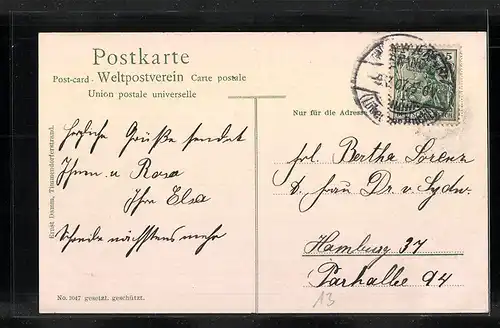 Postkarte
Post-card. Weltpostverein Carte postale
Union postale universelle
Nur für die Adresse
Ernst Damm, Timmendorferstrand.
herzliche Grüße sendet
Ihnen u Rosa
Ihre Elsa
Schreibe nächstens mehr
frl. Bertha Lorenz
b. frau Dr. v. Sydow
Hamburg 37
Parkallee 94
13
No. 1047 gesetzl. geschützt.